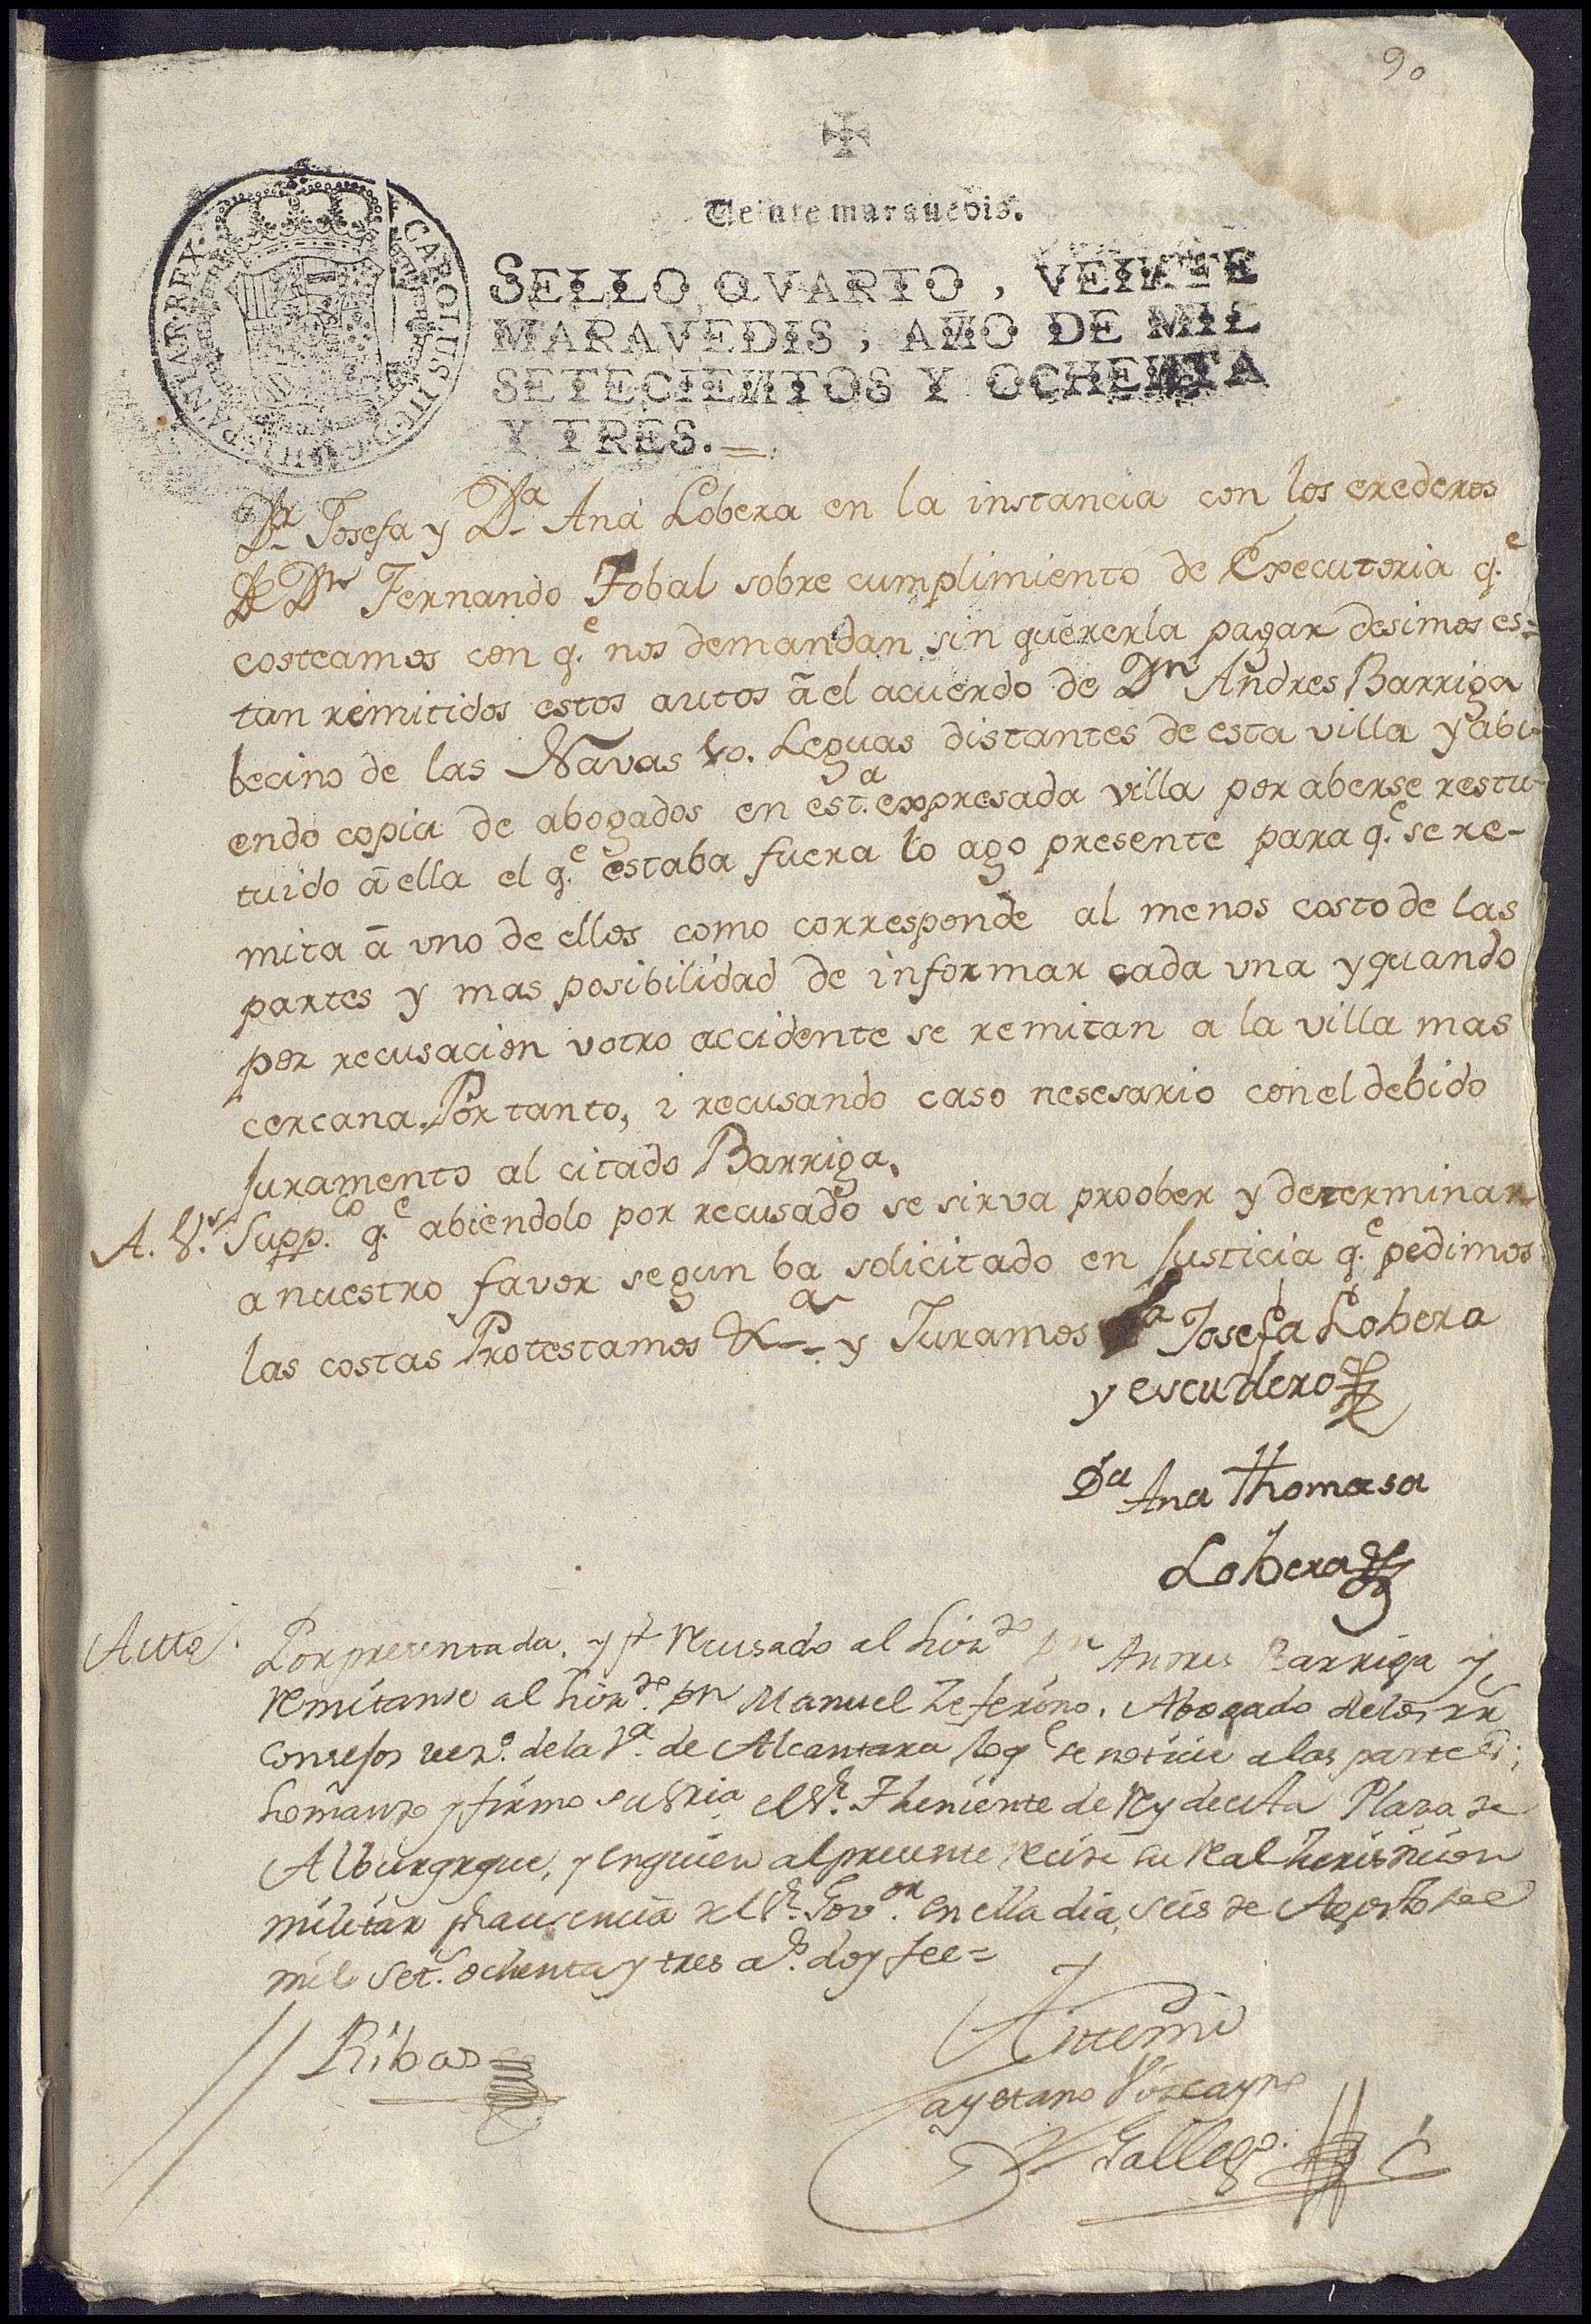 90
Veinte maravedis.
SELLO QVARTO, VEINTE
MARAVEDIS, AÑO DE MIL
SETECIENTOS Y OCHENTA
Y TRES.
CAROLUS III D G HISPANIAR REX
Da Josefa y Da Ana Lobera en la instancia con los erederos
de Dn Fernando Tobal sobre cumplimiento de Executoria q.e
costeamos con q.e nos demandan sin quererla pagar desimos es-
tan remitidos estos autos â el acuerdo de Dn Andres Barriga
becino de las Navas Leguas distantes de esta villa y abi-
endo copia de abogados en est.a expresada villa por aberse restu-
tuido â ella el q.e estaba fuera lo ago presente para q.e se re-
mita â uno de ellos como corresponde al menos costo de las
partes y mas posibilidad de informar cada una y quando
por recusacion v otro accidente se remitan a la villa mas
cercana. Por tanto, i recusando caso nesesario con el debido
Juramento al citado Barriga.
A. V.s Supp.co q.e abiendolo por recusado se sirva proober y determinar
a nuestro favor segun ba solicitado en Justicia q.e pedimos
las costas Protestamos &.a y Juramos Da Josefa Lobera
y escudero
Da Ana Thomasa
Lobera
Auto
Por presentada, y pr recusado al Lizdo Dn Andres Barriga y
remitanse al Lizdo Dn Manuel Zeferino. Abogado de los RR
Consejos vezo. de la Va. de Alcantara lo q.e se noticie a las partes;
Lo mando y firmo su Sria el Sr. Theniente de Rey de esta Plaza de
Alburqrque, y en quien al presente recide la Real Jurisdicion
militar pr ausencia del Sr. Gov.or en ella dia seis de Agosto de
mil set.s ochenta y tres a.s doy fee=
Ribas
Antemi
Cayetano Vizcayno
Gallego